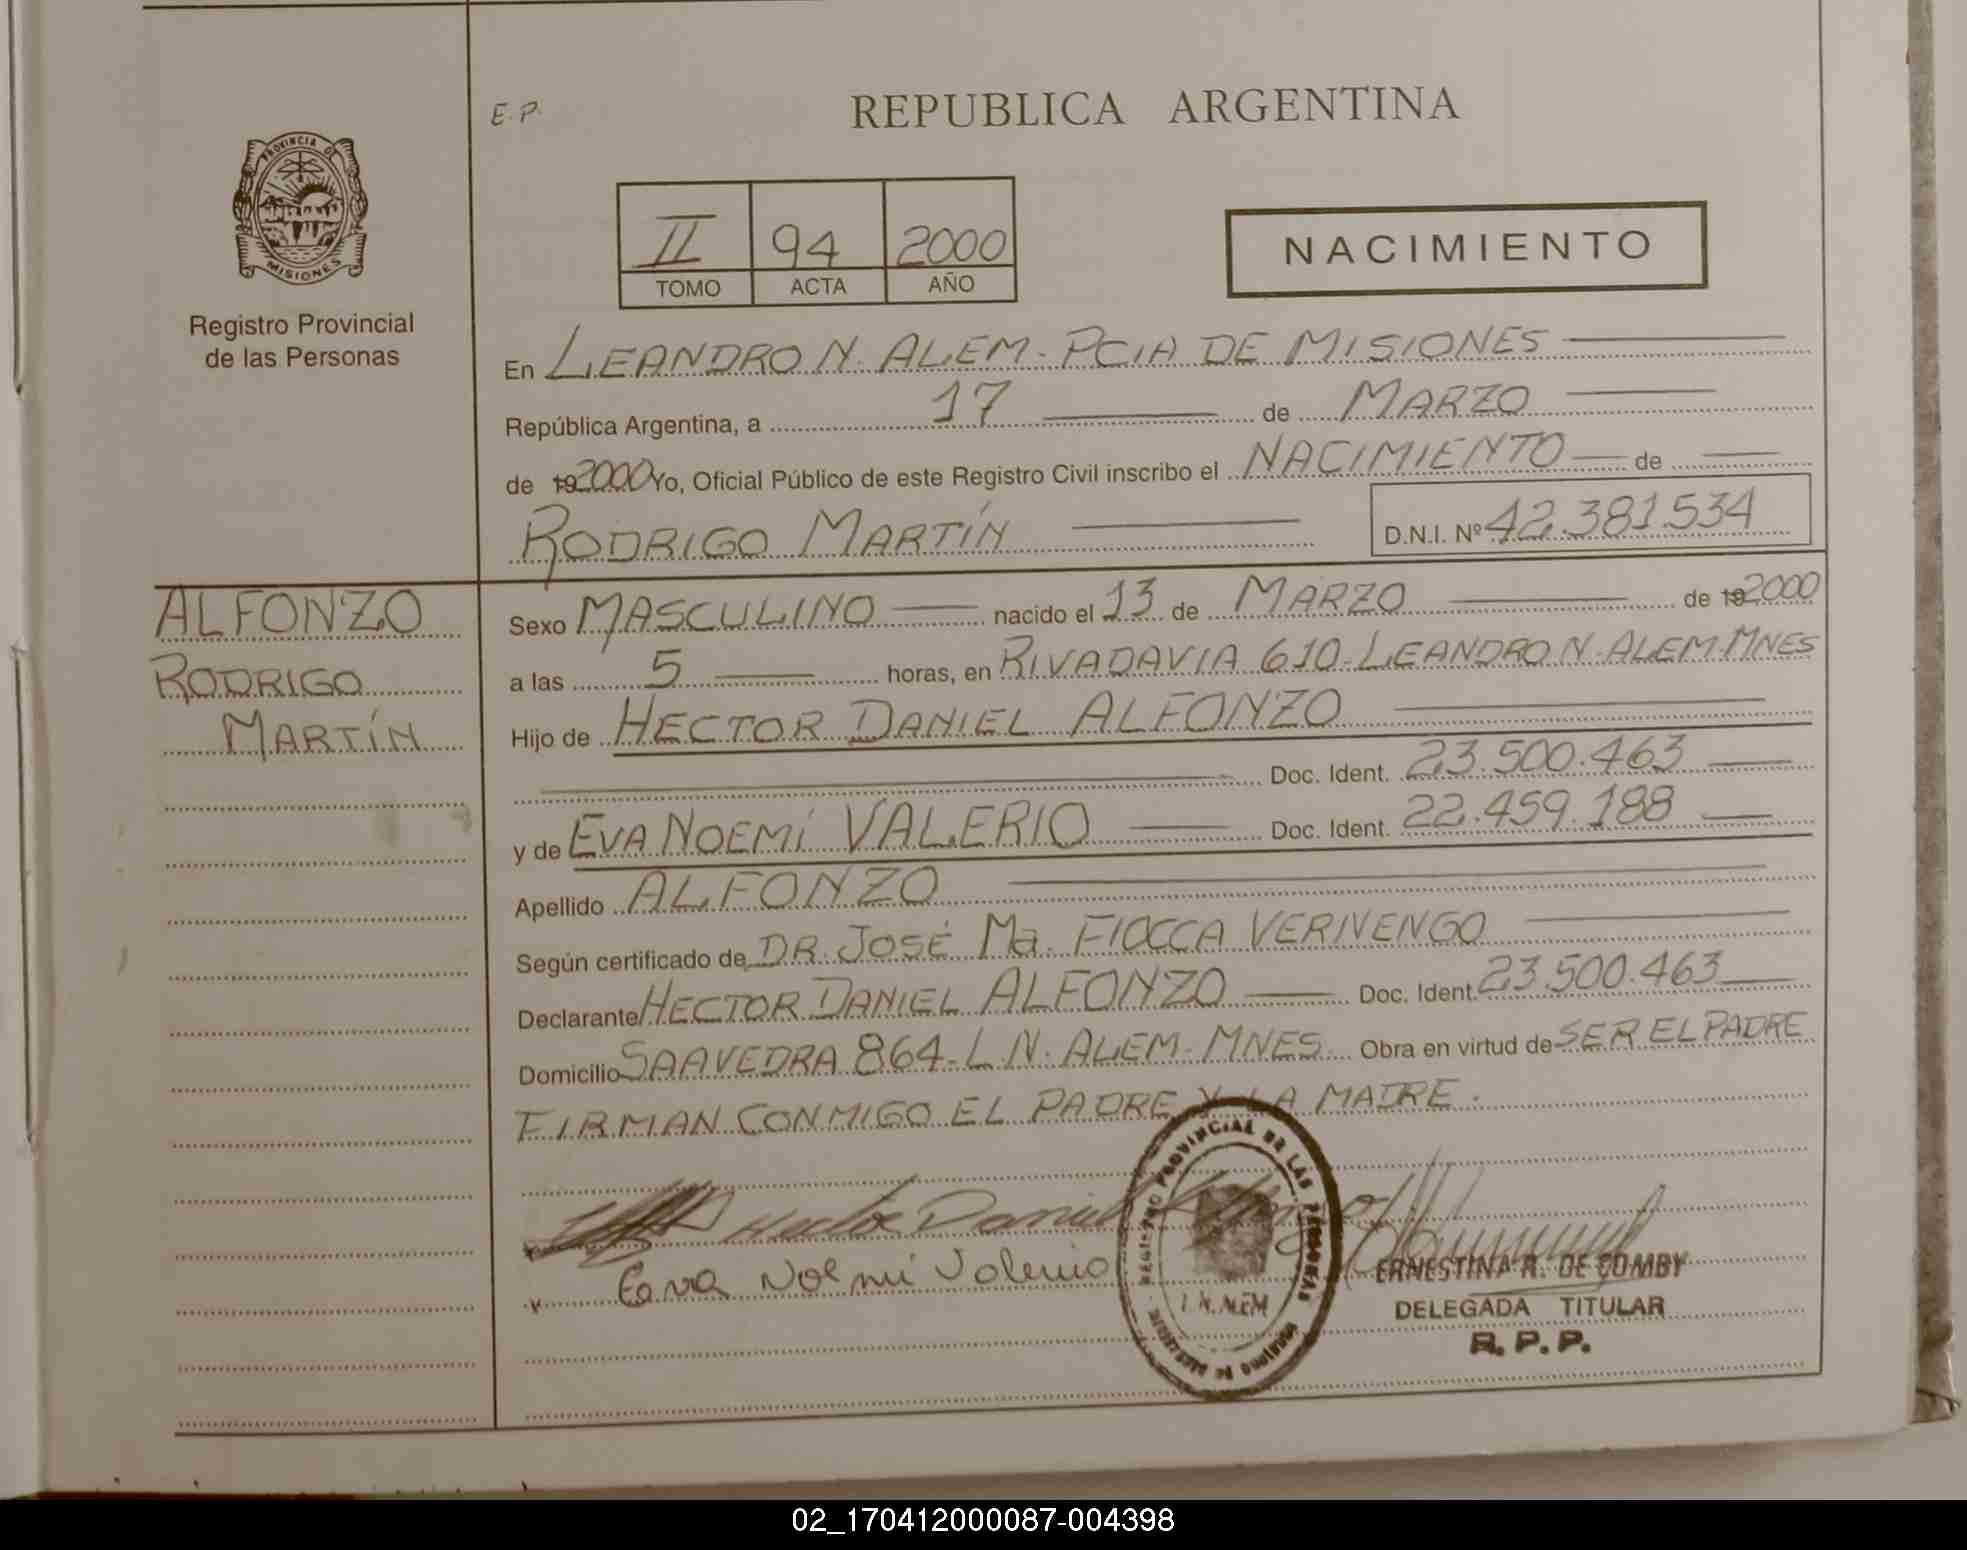 E.P.
REPUBLICA ARGENTINA
PROVINCIA DE
MISIONES
Registro Provincial
de las Personas
II 94 2000
TOMO ACTA AÑO
NACIMIENTO
En LEANDRO N. ALEM - PCIA DE MISIONES
República Argentina, a 17 de MARZO
de 192000 Yo, Oficial Público de este Registro Civil inscribo el NACIMIENTO de
RODRIGO MARTÍN D.N.I. Nº 42.381.534
ALFONZO
RODRIGO
MARTÍN
Sexo MASCULINO nacido el 13 de MARZO de 192000
a las 5 horas, en RIVADAVIA 610 - LEANDRO N. ALEM. MNES
Hijo de HECTOR DANIEL ALFONZO
Doc. Ident. 23.500.463
y de EVA NOEMÍ VALERIO Doc. Ident. 22.459.188
Apellido ALFONZO
Según certificado de DR. JOSÉ Ma. FIOCCA VERNENGO
Declarante HECTOR DANIEL ALFONZO Doc. Ident. 23.500.463
Domicilio SAAVEDRA 864 - L.N. ALEM - MNES Obra en virtud de SER EL PADRE
FIRMAN CONMIGO EL PADRE Y LA MADRE.
Hector Daniel Alfonzo
Eva Noemi Valerio
REGISTRO PROVINCIAL DE LAS PERSONAS
L.N. ALEM
ERNESTINA R. DE COMBY
DELEGADA TITULAR
R. P. P.
02_170412000087-004398